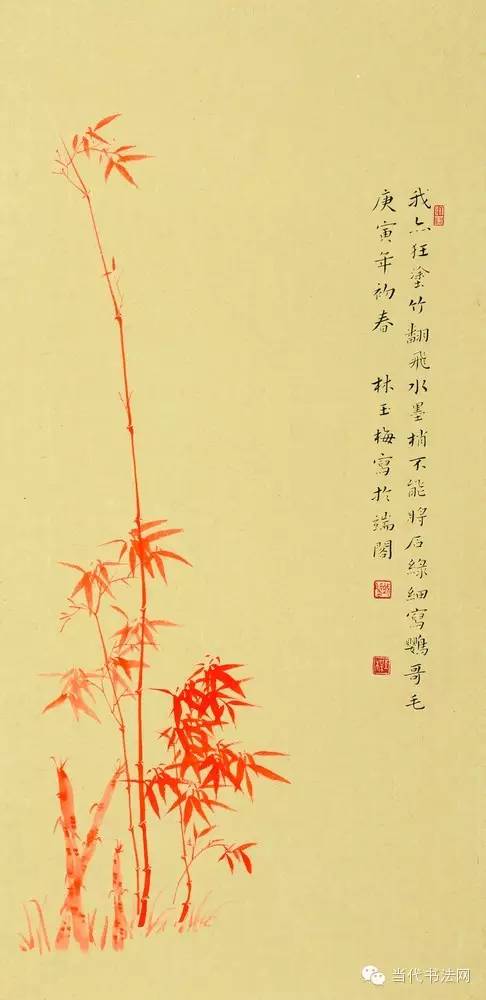 我亦狂塗竹翻飛水墨梢不能將石綠細寫鸚哥毛
庚寅年初春 林玉梅寫於端閣
当代书法网